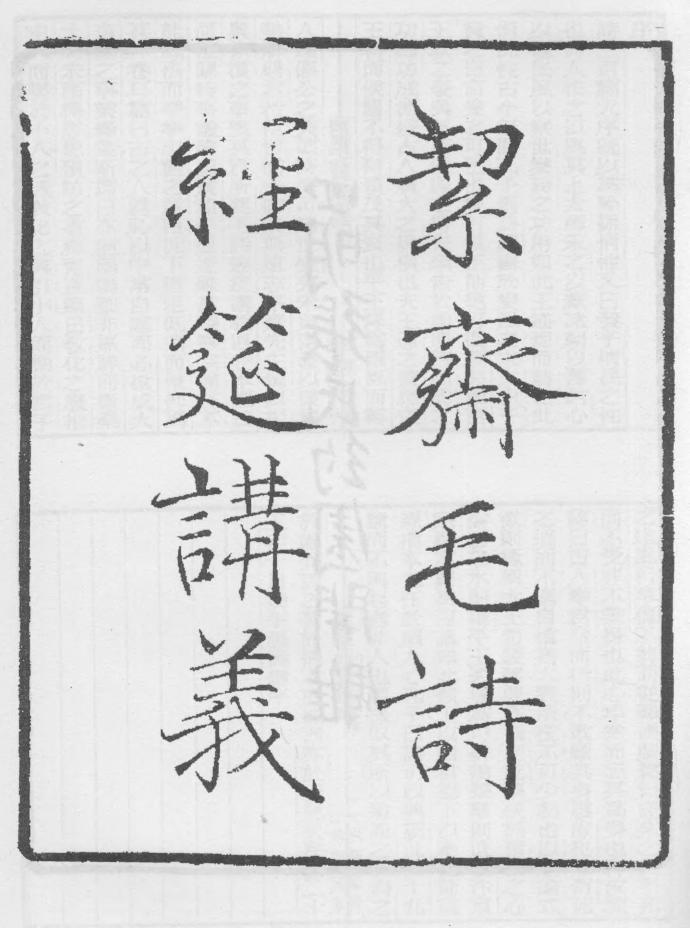 絜齋毛詩
經筵講義